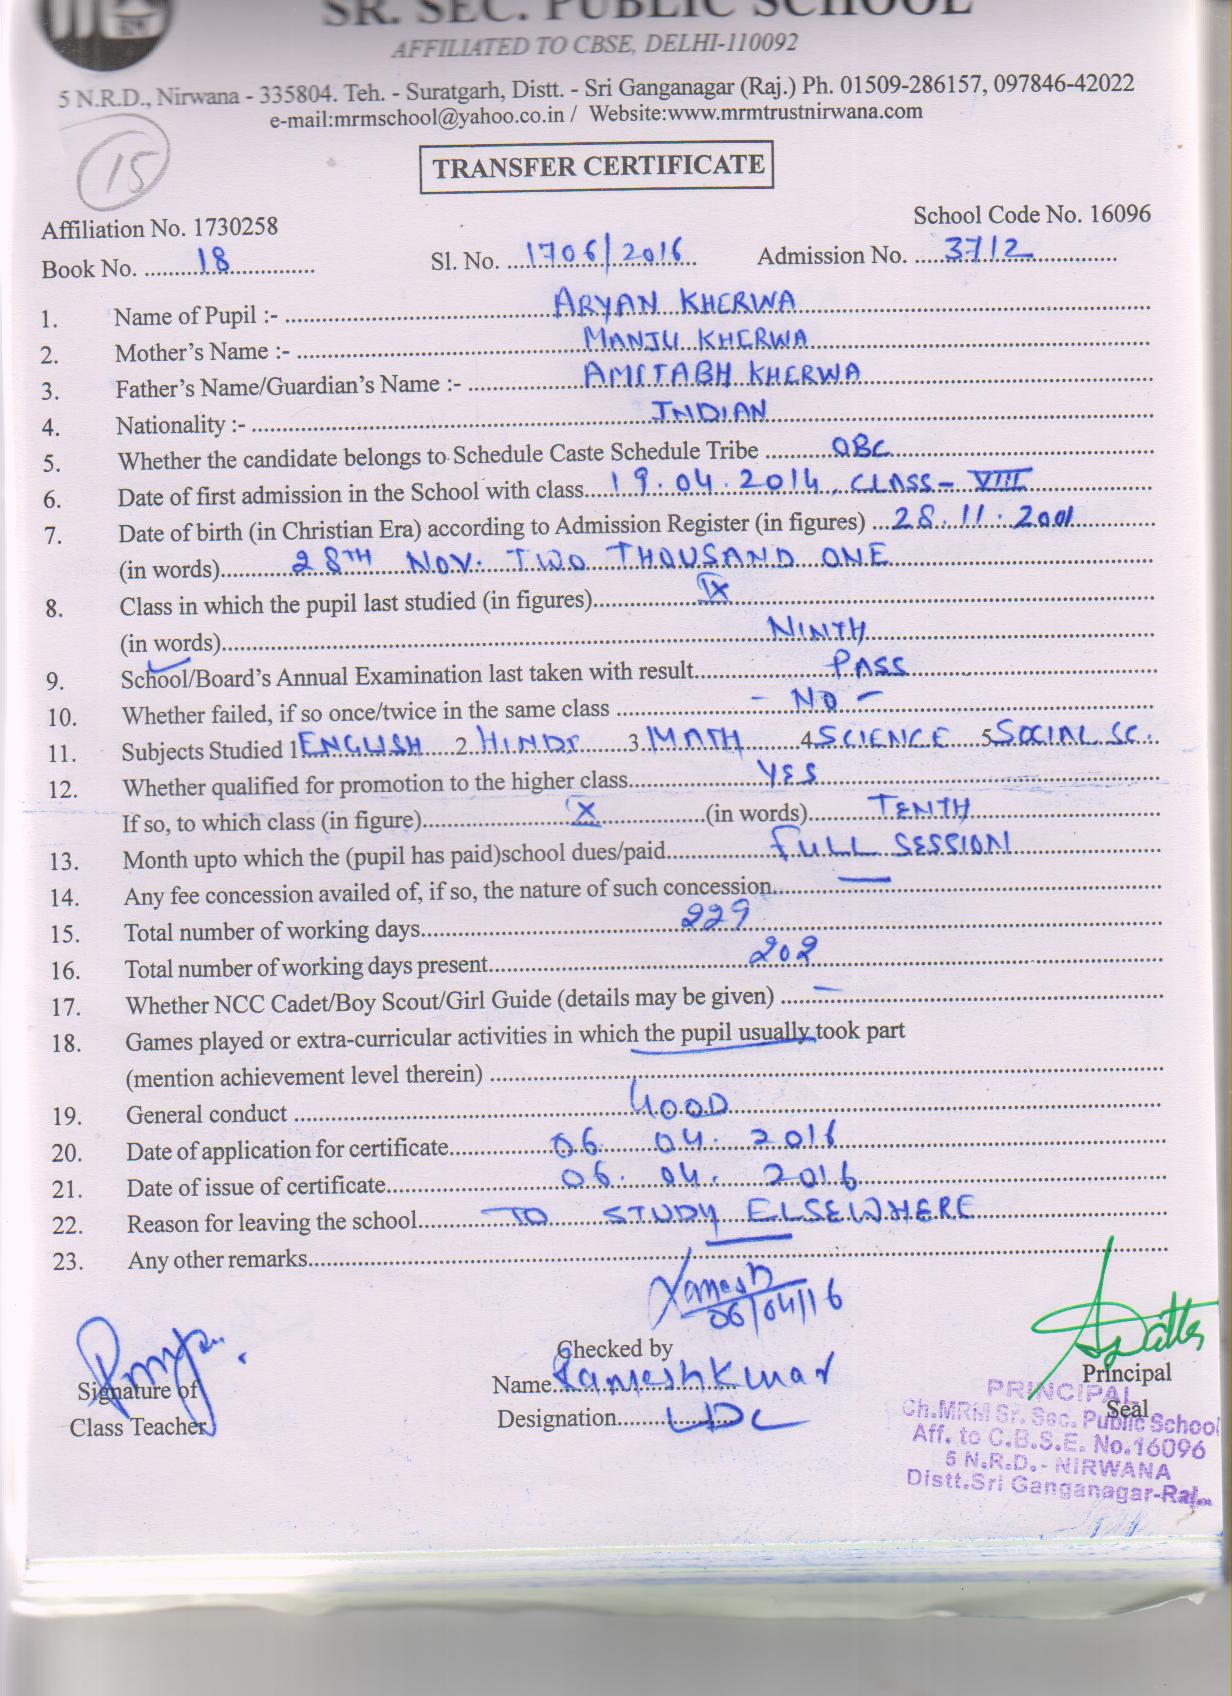 SR. SEC. PUBLIC SCHOOL
AFFILIATED TO CBSE, DELHI-110092
5 N.R.D., Nirwana - 335804. Teh. - Suratgarh, Distt. - Sri Ganganagar (Raj.) Ph. 01509-286157, 097846-42022
e-mail:mrmschool@yahoo.co.in / Website:www.mrmtrustnirwana.com
15
TRANSFER CERTIFICATE
Affiliation No. 1730258 School Code No. 16096
Book No. 18 Sl. No. 1706/2016 Admission No. 3712
1. Name of Pupil :- ARYAN KHERWA
2. Mother's Name :- MANJU KHERWA
3. Father's Name/Guardian's Name :- AMITABH KHERWA
4. Nationality :- INDIAN
5. Whether the candidate belongs to Schedule Caste Schedule Tribe OBC
6. Date of first admission in the School with class 19.04.2014, CLASS - VIII
7. Date of birth (in Christian Era) according to Admission Register (in figures) 28.11.2001
(in words) 28TH NOV. TWO THOUSAND ONE
8. Class in which the pupil last studied (in figures) IX
(in words) NINTH
9. School/Board's Annual Examination last taken with result PASS
10. Whether failed, if so once/twice in the same class - NO -
11. Subjects Studied 1 ENGLISH 2 HINDI 3 MATH 4 SCIENCE 5 SOCIAL SC.
12. Whether qualified for promotion to the higher class YES
If so, to which class (in figure) X (in words) TENTH
13. Month upto which the (pupil has paid)school dues/paid FULL SESSION
14. Any fee concession availed of, if so, the nature of such concession —
15. Total number of working days 229
16. Total number of working days present 202
17. Whether NCC Cadet/Boy Scout/Girl Guide (details may be given) —
18. Games played or extra-curricular activities in which the pupil usually took part
(mention achievement level therein)
19. General conduct GOOD
20. Date of application for certificate 06. 04. 2016
21. Date of issue of certificate 06. 04. 2016
22. Reason for leaving the school TO STUDY ELSEWHERE
23. Any other remarks —
Ramesh
06/04/16
Signature of
Class Teacher
Checked by
Name Rameshkumar
Designation LDC
Principal
Seal
PRINCIPAL
Ch.MRM Sr. Sec. Public School
Aff. to C.B.S.E. No.16096
5 N.R.D.- NIRWANA
Distt.Sri Ganganagar-Raj.